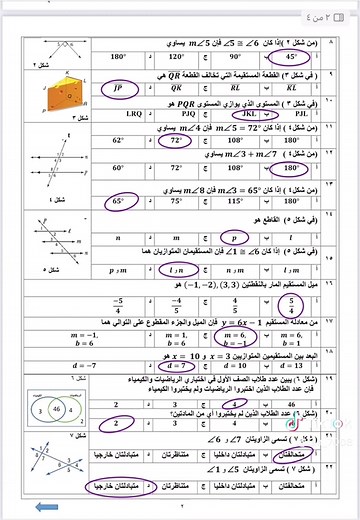 ٣ من ٤
٨ (من شكل ٢) إذا كان ∠5 ≅ ∠6 فإن m∠5 يساوي
أ 45° ب 90° ج 120° د 180°
شكل ٢
٩ (في شكل ٣) القطعة المستقيمة التي تخالف القطعة QR هي
أ KL ب RL ج QK د JP
شكل ٣
١٠ (في شكل ٣) المستوى الذي يوازي المستوى PQR هو
أ PJL ب JKL ج PJQ د LRQ
١١ (من شكل٤) m∠5 = 72° فإن m∠4 يساوي
أ 108° ب 18° ج 72° د 62°
١٢ (من شكل٤) m∠3 + m∠7 يساوي
أ 180° ب 108° ج 72° د 60°
شكل ٤
١٣ (من شكل٤) إذا كان m∠3 = 65° فإن m∠8 يساوي
أ 180° ب 115° ج 75° د 65°
١٤ (في شكل ٥) القاطع هو
أ l ب p ج m د n
١٥ (في شكل ٥) إذا كان ∠1 ≅ ∠6 فإن المستقيمان المتوازيان هما
أ l و m ب m و n ج l و n د m و p
شكل ٥
١٦ ميل المستقيم المار بالنقطتين (3, 3), (−1, −2) هو
أ 5/4 ب 4/5 ج −4/5 د −5/4
١٧ من معادلة المستقيم y = 6x − 1 فإن الميل والجزء المقطوع على التوالي هما
أ m = 6, b = 1 ب m = 6, b = −1 ج m = 1, b = 6 د m = −1, b = 6
١٨ البعد بين المستقيمين المتوازيين x = 3 و x = 10 هو
أ d = 13 ب d = 10 ج d = 7 د d = −7
١٩ (شكل ٦) يبين عدد طلاب الصف الأول في اختباري الرياضيات والكيمياء
فإن عدد الطلاب الذين لم يختبروا الرياضيات واختبروا الكيمياء
أ ب 4 ج 3 د 2
شكل ٦
3 46 4
2
٢٠ (شكل ٦) عدد الطلاب الذين لم يختبروا أي من المادتين؟
أ ب 4 ج 3 د 2
٢١ (شكل ٧) تسمى الزاويتان ∠7 و ∠6
أ متحالفتان ب متبادلتان داخليا ج متناظرتان د متبادلتان خارجيا
شكل ٧
٢٢ (شكل ٧) تسمى الزاويتان ∠5 و ∠1
أ متحالفتان ب متبادلتان داخليا ج متناظرتان د متبادلتان خارجيا
٢